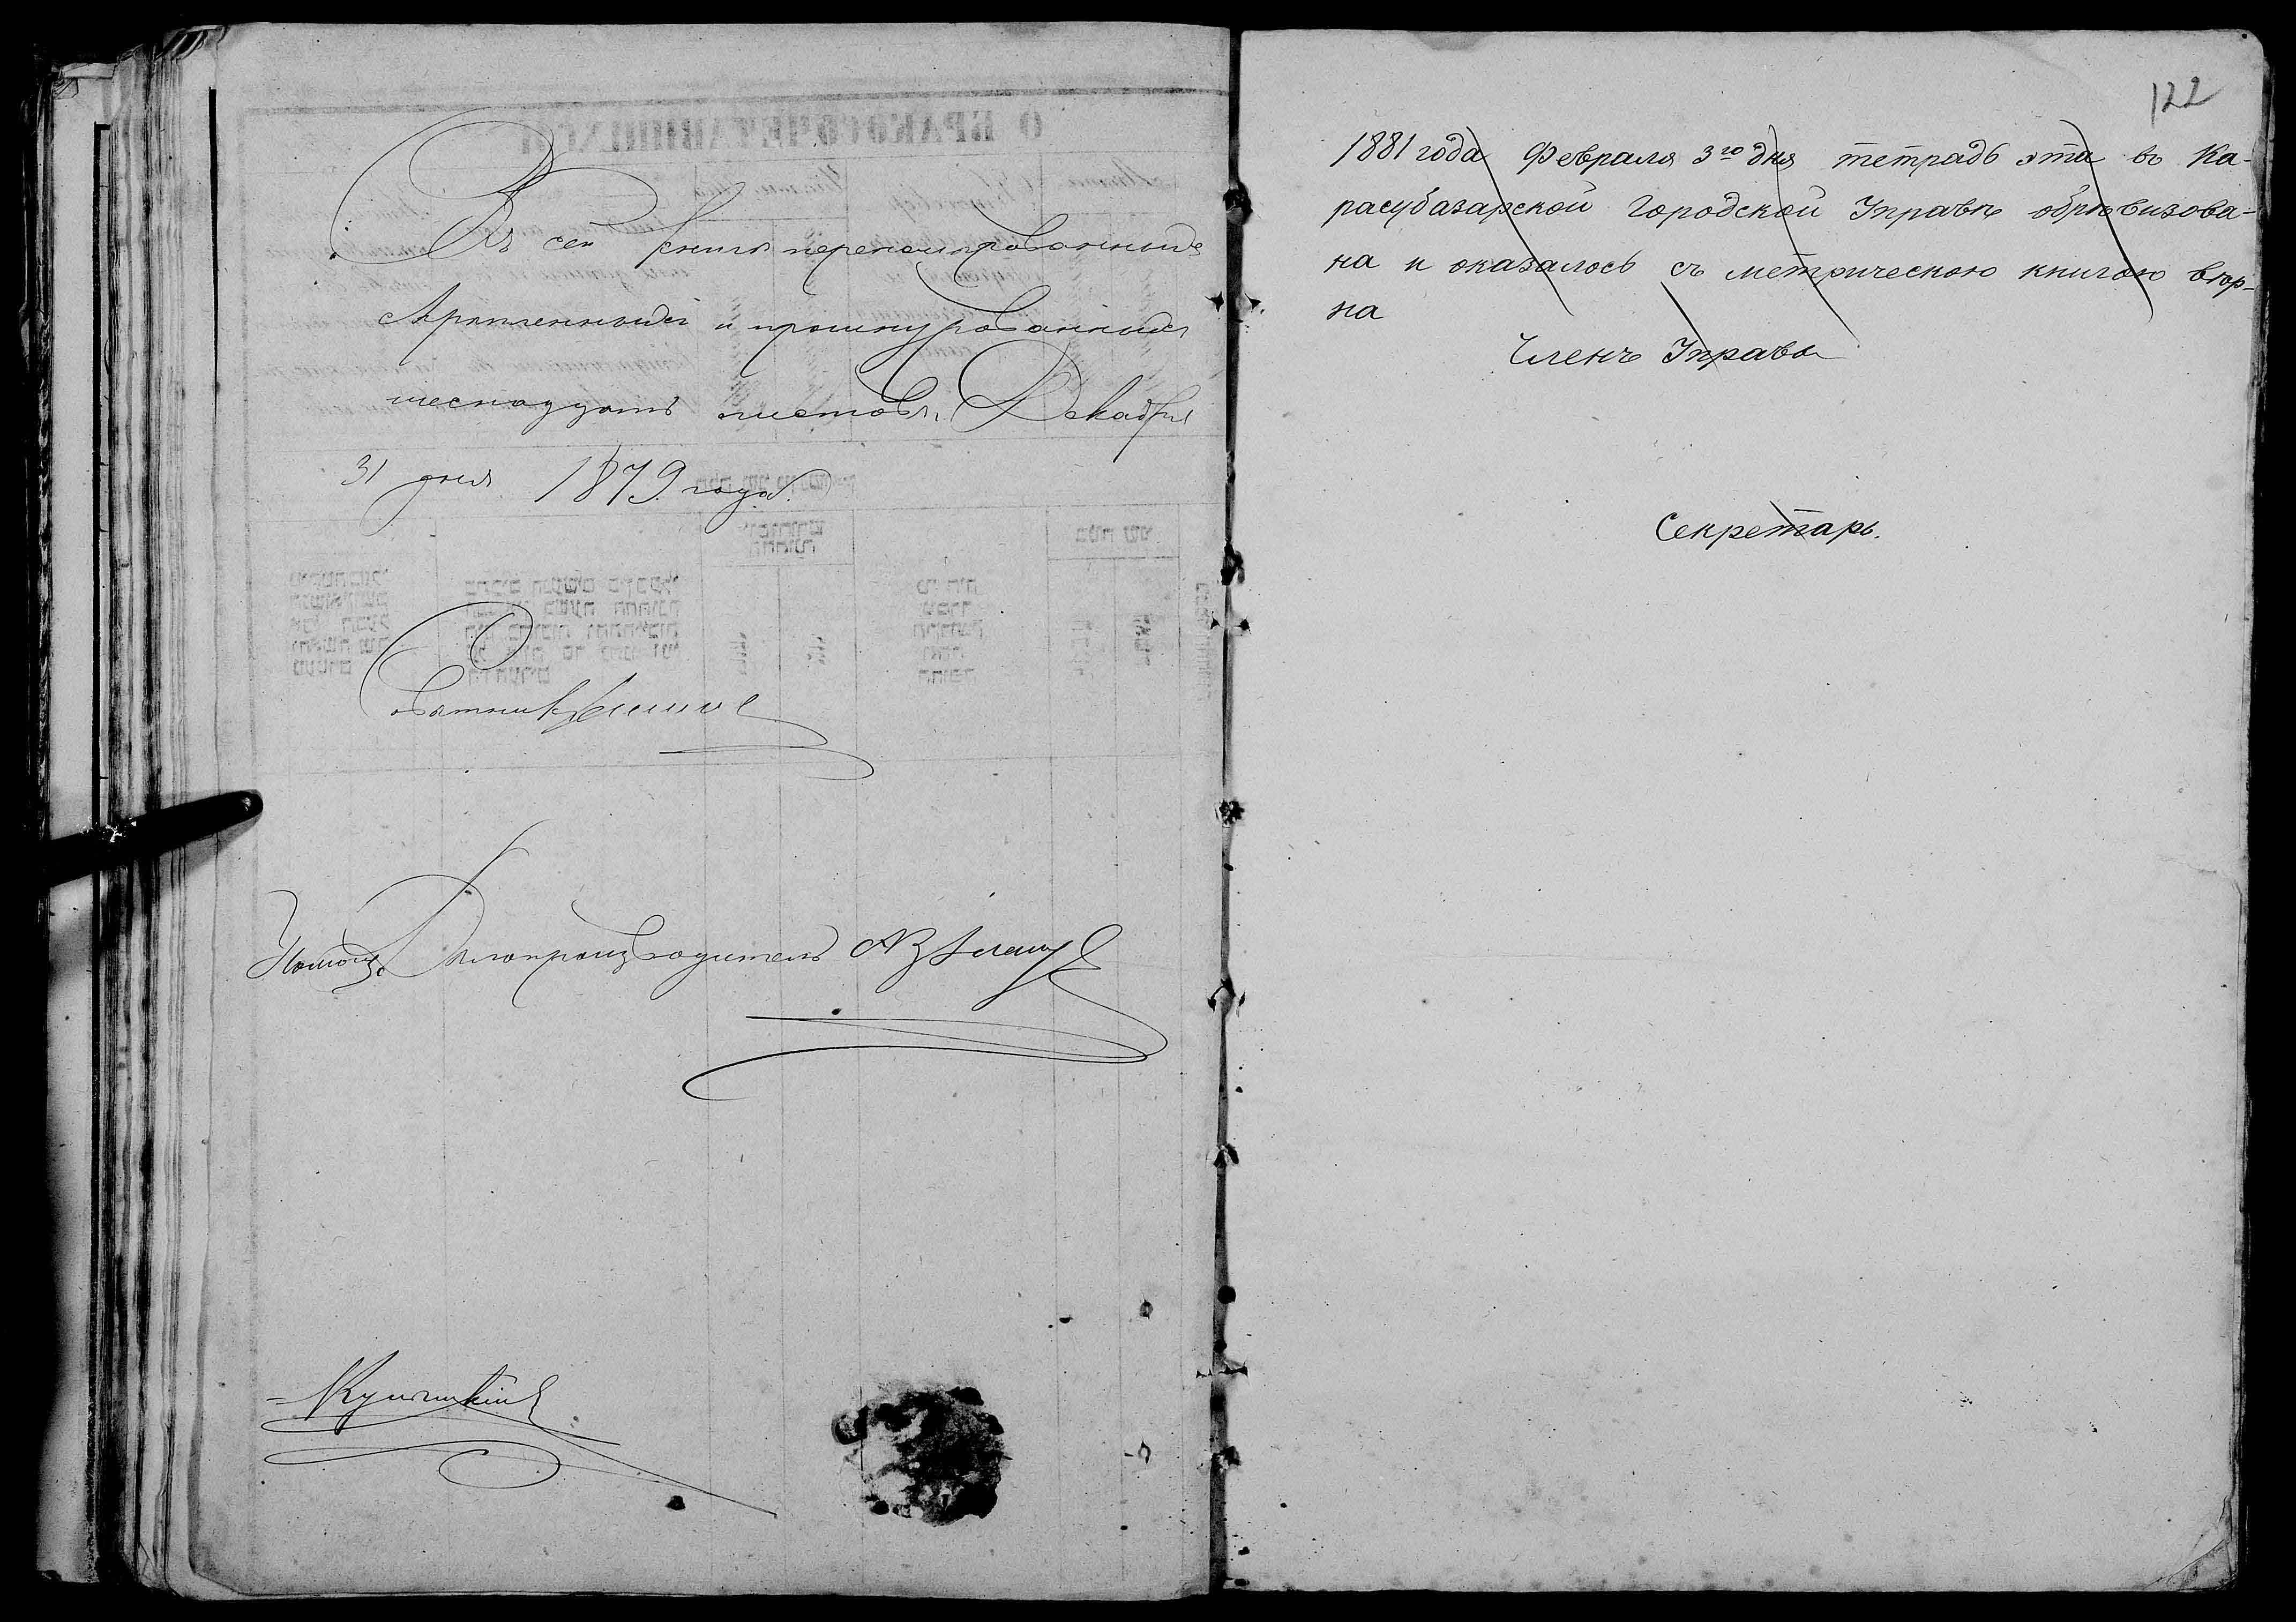 Въ сей книге перенумерованныхъ
скрепленныхъ и прошнурованныхъ
шеснадцать листовъ, Декабря
31 дня 1879 года.
Советникъ
Помощ. Делопроизводителя
122
1881 года Февраля 3го дня тетрадь эта въ Ка-
расубазарской Городской Управѣ обревизова-
на и оказалось съ метрическою книгою вѣр-
на
Членъ Управы
Секретарь.